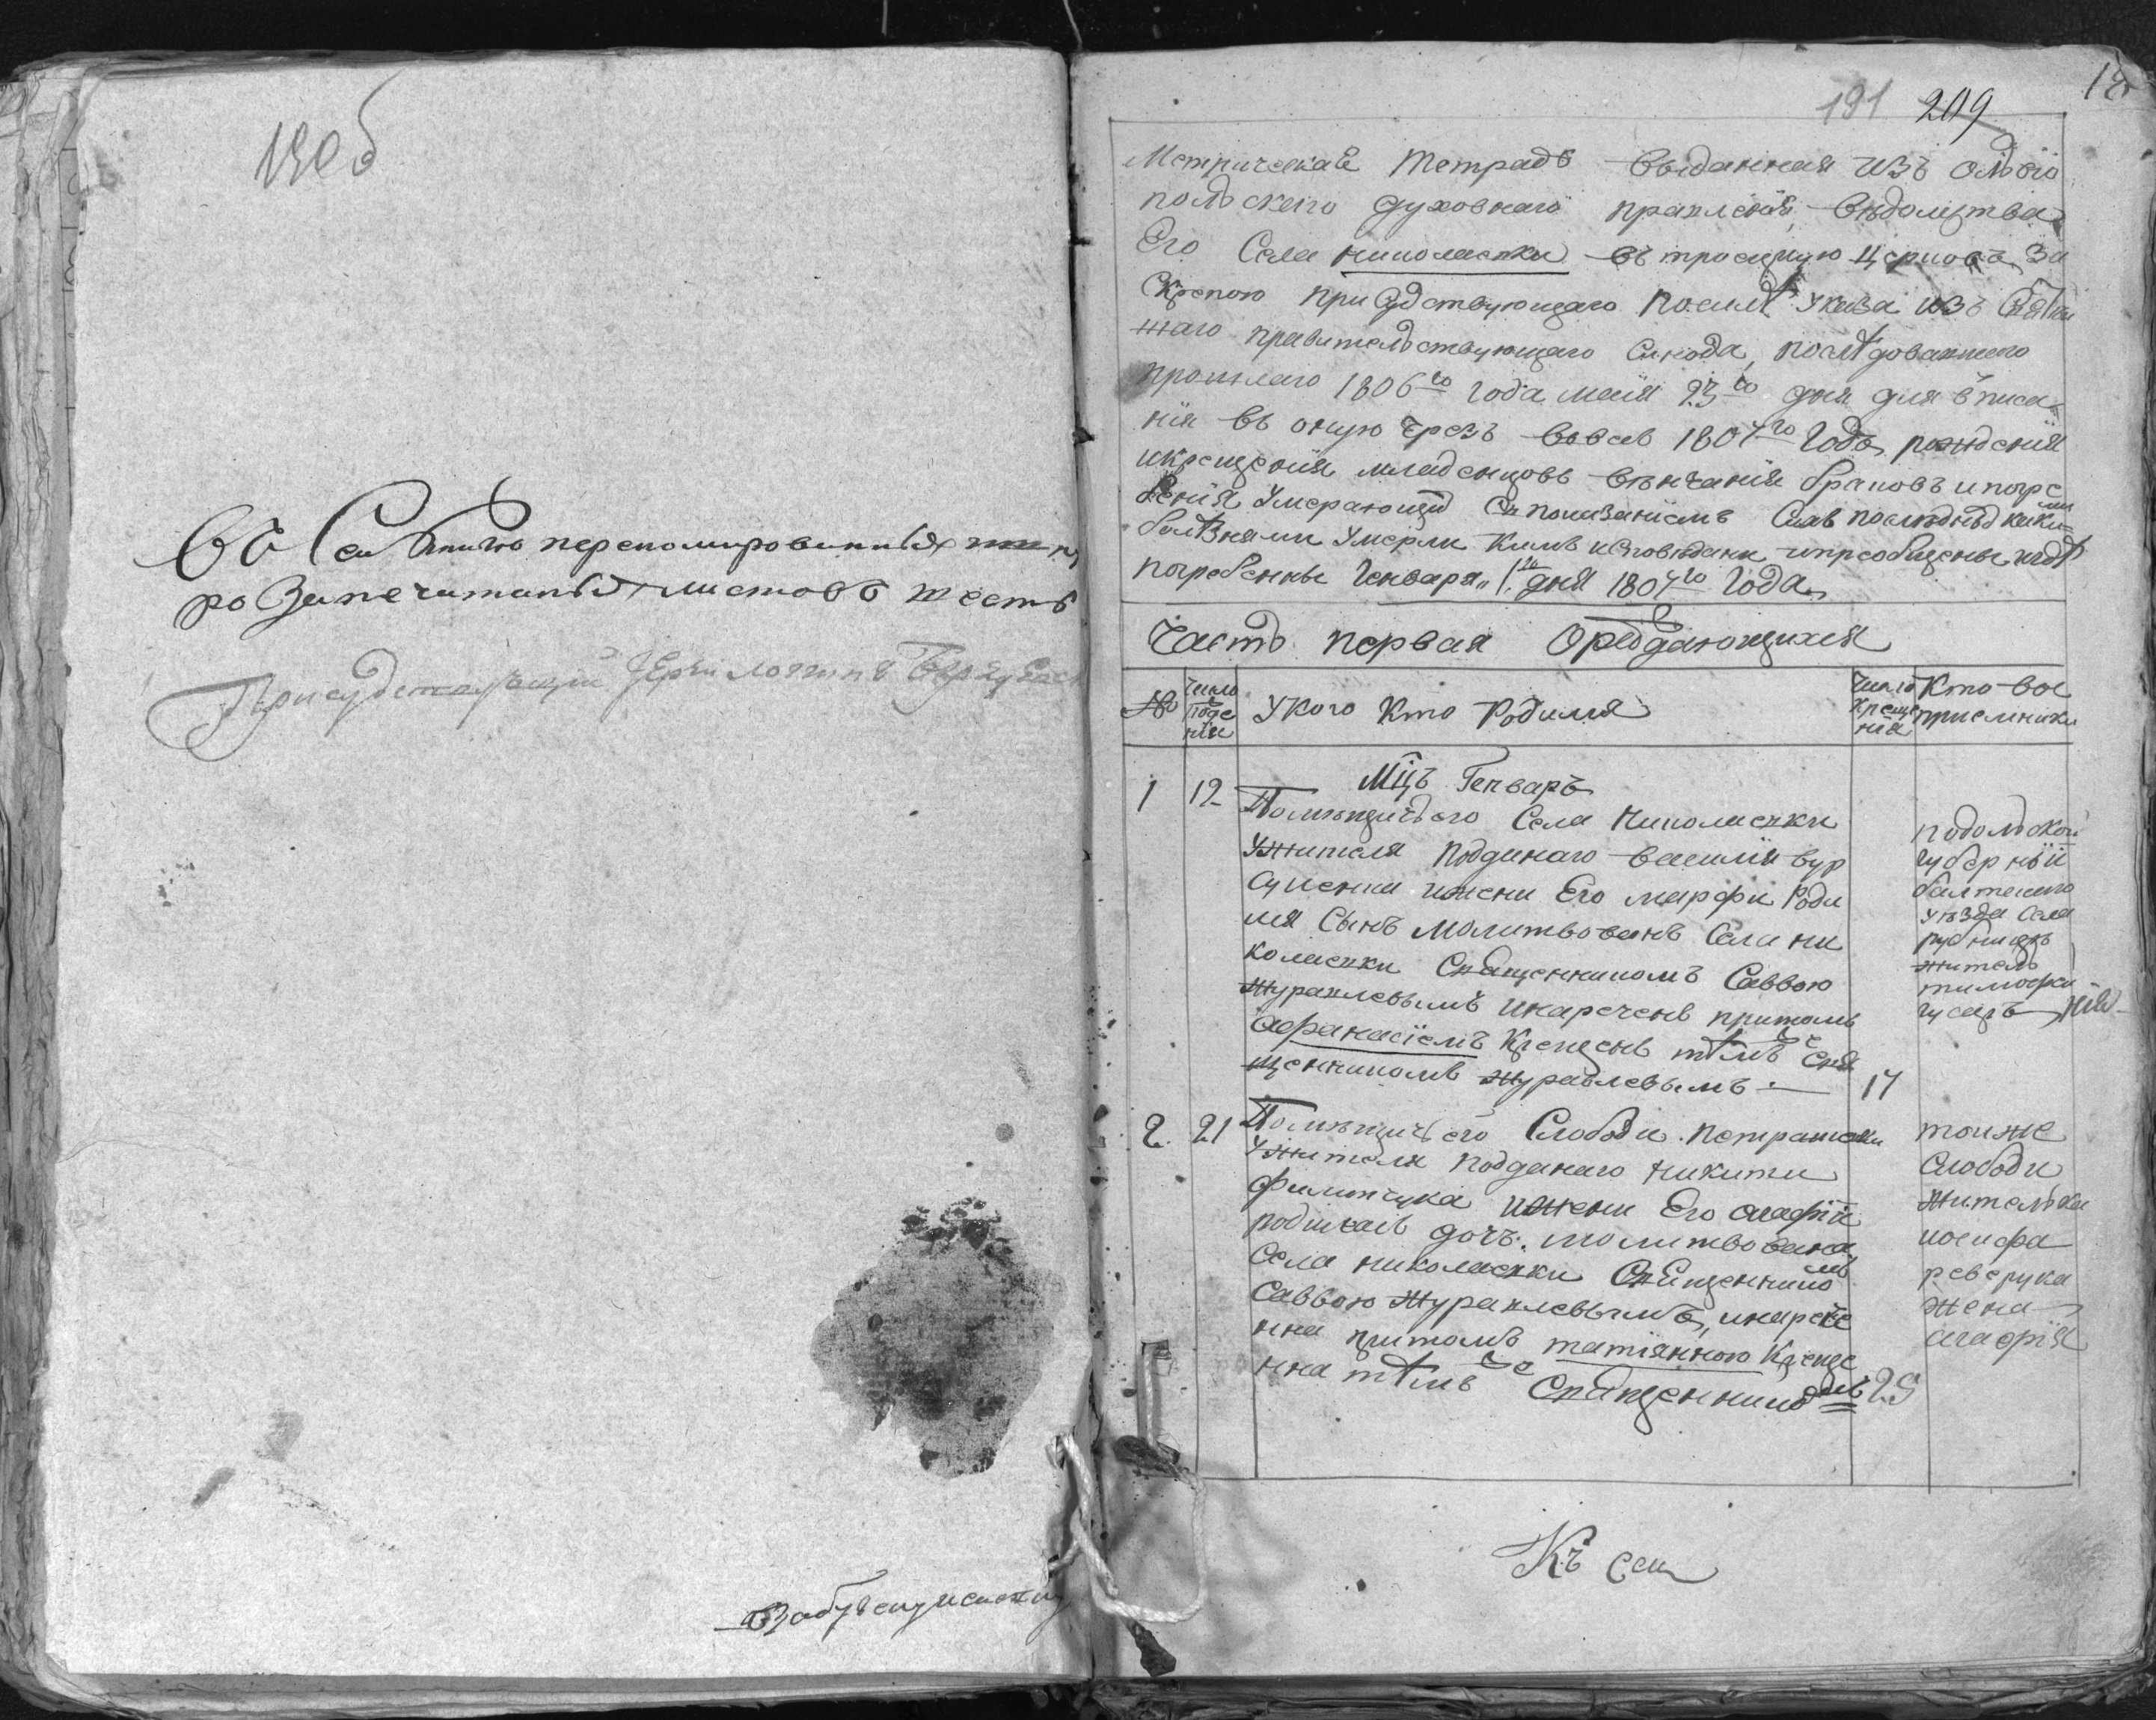 190б
Во
переномированныхъ
ро запечатаныхъ листовъ шесть
Присудствующій
191 209
Метрическая тетрадь выданная изъ Ольвіо
польского духовнаго правленія, вѣдомства
его села николаевки въ троецкую церковь, За
скрепою присудствующаго по силѣ указа изъ Святей
шаго правительствующаго синода, послѣдовавшего
прошлаго 1806го года маія 23го дня для вписа
нія въ оную чрезъ вовсѣ 1807го годъ, рожденія
икрещенія младенцовъ венчанія браковъ ипогре
бенія умерающихъ Съ показаніемъ Сихъ послѣднѣхъ какими
болѣзнями умерли кимъ исповѣдани ипреобщены игдѣ
погребенны Генваря 1го дня 1807го года
Часть первая О рождающихся
№
число рожде нія
У кого кто Родился
Число Креще нія
Кто вос
приемники
Мцъ Генваръ
1 12
Помѣщичьего Села Николаевки
Ужителя подданаго василія бур
суценки ижени Его марфи Роди
лся Сынъ молитвованъ Села ни
колаевки Священникомъ Саввою
Журавлевымъ инареченъ притомъ
афанасіемъ Крещенъ тѣмъ же Свя
щенникомъ журавлевымъ
17
подольской
губерніи
балтского
уѣзда села
житель
тимофей
гусаръ
2 21
Помѣщичьего Слободи петрашовки
Ужителя подданаго никити
филипчука ижени Его агафіи
родилась дочъ. молитвована
Села николаевки Священникомъ
Саввою Журавлевымъ, инарече
нна притомъ татіянною Креще
нна тѣмъ же Священникомъ
25
тоиже
слободи
жителька
иосифа
реверука
жена
агафія
Къ сей